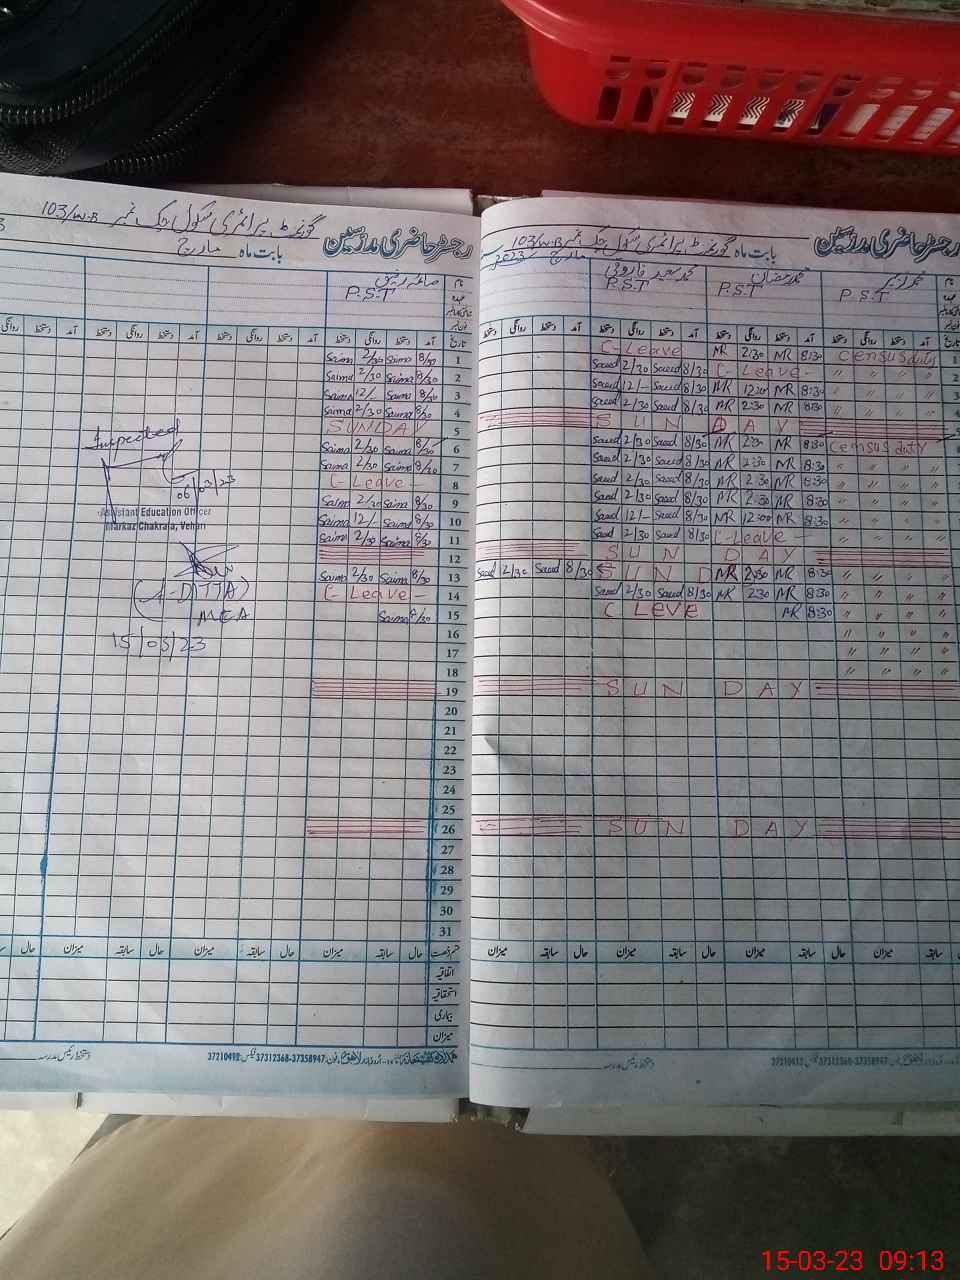 رجسٹر حاضری مدرسین
گورنمنٹ پرائمری سکول چک نمبر 103/W-B
بابت ماہ مارچ
صائمہ رفیق
P.S.T
تاریخ آمد دستخط روانگی دستخط
1 8/30 Saima 2/30 Saima
2 8/30 Saima 2/30 Saima
3 8/30 Saima 12/- Saima
4 8/30 Saima 2/30 Saima
5 SUNDAY
6 8/30 Saima 2/30 Saima
7 8/30 Saima 2/30 Saima
8 C-Leave -
9 8/30 Saima 2/30 Saima
10 8/30 Saima 12/- Saima
11 8/30 Saima 2/30 Saima
12
13 8/30 Saima 2/30 Saima
14 C-Leave -
15 8/30 Saima
16
17
18
19
20
21
22
23
24
25
26
27
28
29
30
31
Inspected
06/03/23
Assistant Education Officer
Markaz Chakrala, Vehari
MEA
15/03/23
حال سابقہ میزان
اتفاقیہ
استحقاقیہ
بیماری
میزان
دستخط رئیس مدرسہ
37210412 37312368-37358947
رجسٹر حاضری مدرسین
گورنمنٹ پرائمری سکول چک نمبر 103/W-B
بابت ماہ مارچ 2023
محمد رمضان محمد سعید فاروقی
P.S.T P.S.T P.S.T
آمد دستخط روانگی دستخط
C-Leave MR 2:30 MR 8:30 Census duty
Saeed 2/30 Saeed 8/30 C-Leave -
Saeed 12/- Saeed 8/30 MR 12:00 MR 8:30
Saeed 2/30 Saeed 8/30 MR 2:30 MR 8:30
SUN DAY
Saeed 2/30 Saeed 8/30 MR 2:30 MR 8:30 Census duty
Saeed 2/30 Saeed 8/30 MR 2:30 MR 8:30
Saeed 2/30 Saeed 8/30 MR 2:30 MR 8:30
Saeed 2/30 Saeed 8/30 MR 2:30 MR 8:30
Saeed 12/- Saeed 8/30 MR 12:00 MR 8:30
Saeed 2/30 Saeed 8/30 C-Leave -
SUN DAY
Saeed 2/30 Saeed 8/30 SUN D MR 2:30 MR 8:30
Saeed 2/30 Saeed 8/30 MR 2:30 MR 8:30
C LEVE MR 8:30
SUN DAY
SUN DAY
حال سابقہ میزان
دستخط رئیس مدرسہ
37210412 37312368-37358947
15-03-23 09:13